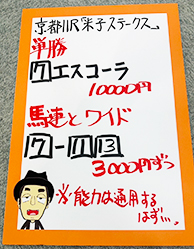 京都11R 米子ステークス
単勝
7エスコーラ
10000円
馬連とワイド
7-11 13
3000円ずつ
※能力は通用する
はず…。